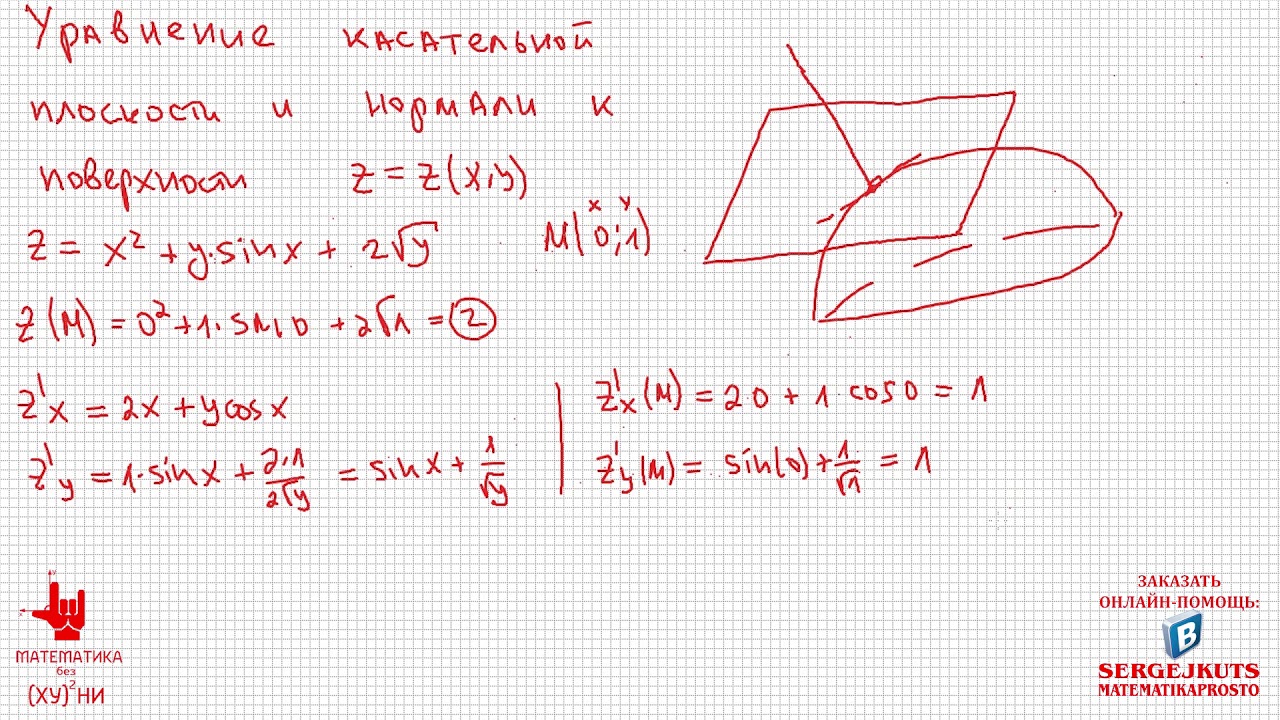 Уравнение касательной
плоскости и нормали к
поверхности z = z(x,y)
z = x² + y·sinx + 2√y M(0;1)
x y
z(M) = 0² + 1·sin0 + 2√1 = 2
z'x = 2x + ycosx
z'y = 1·sinx + 2·1/2√y = sinx + 1/√y
z'x(M) = 2·0 + 1·cos0 = 1
z'y(M) = sin(0) + 1/√1 = 1
y
x
МАТЕМАТИКА
без
(ХУ)²НИ
ЗАКАЗАТЬ
ОНЛАЙН-ПОМОЩЬ:
B
SERGEJKUTS
MATEMATIKAPROSTO